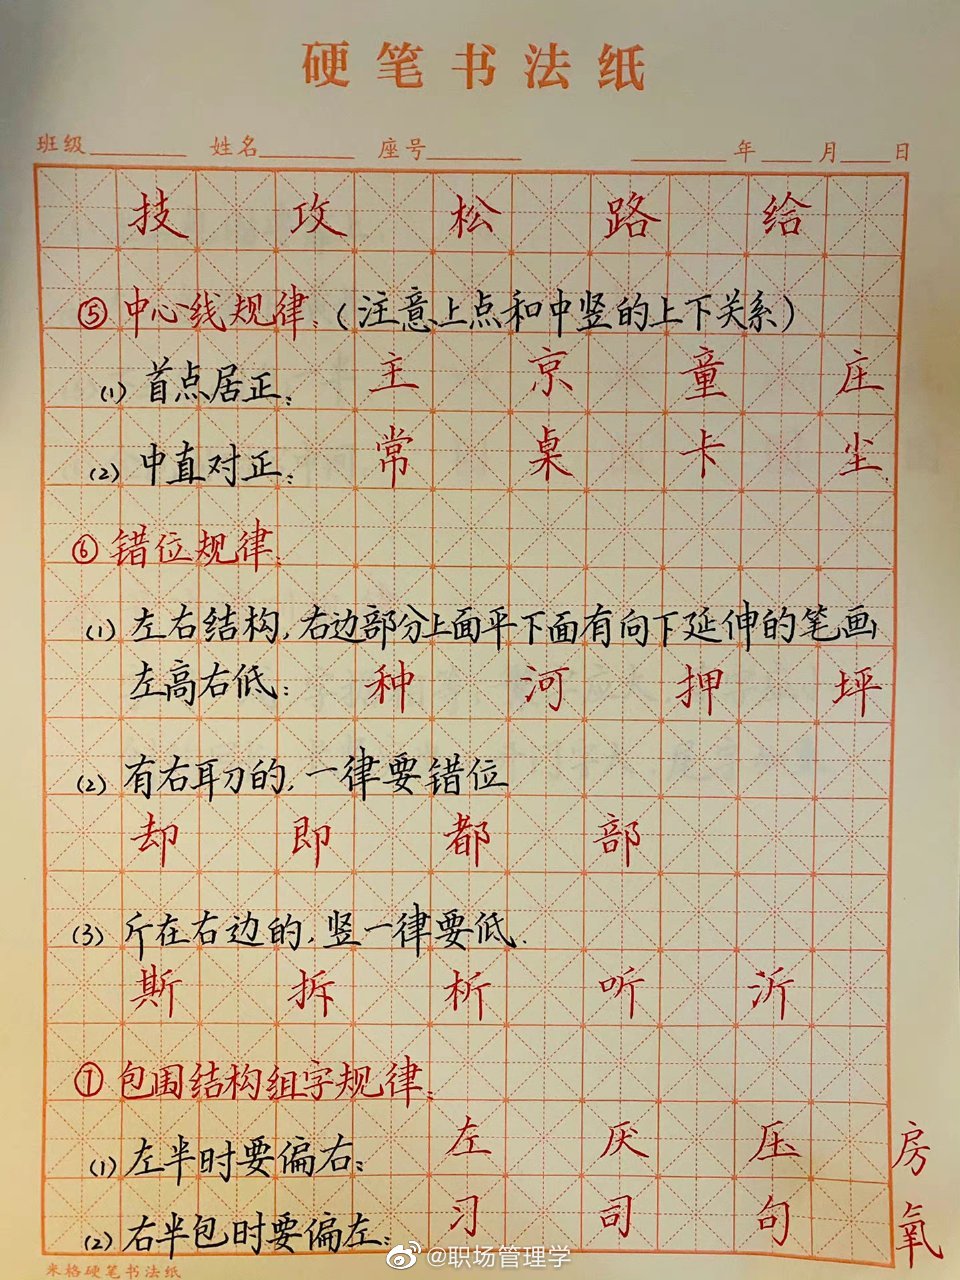 硬笔书法纸
班级 姓名 座号 年 月 日
技 攻 松 路 给
⑤中心线规律:(注意上点和中竖的上下关系)
(1)首点居正: 主 京 童 庄
(2)中直对正: 常 桌 卡 尘
⑥错位规律:
(1)左右结构,右边部分上面平下面有向下延伸的笔画
左高右低: 种 河 押 坪
(2)有右耳刀的,一律要错位
却 即 都 部
(3)斤在右边的,竖一律要低.
斯 拆 析 听 沂
⑦包围结构组字规律:
(1)左半时要偏右: 左 厌 压 房
(2)右半包时要偏左: 习 司 句 氧
米格硬笔书法纸
@职场管理学